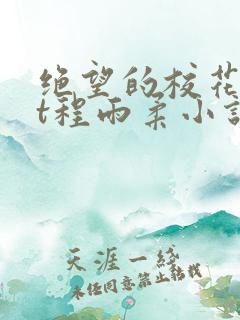 绝望的校花
t程雨柔小说
天涯一线
未经同意禁止转载